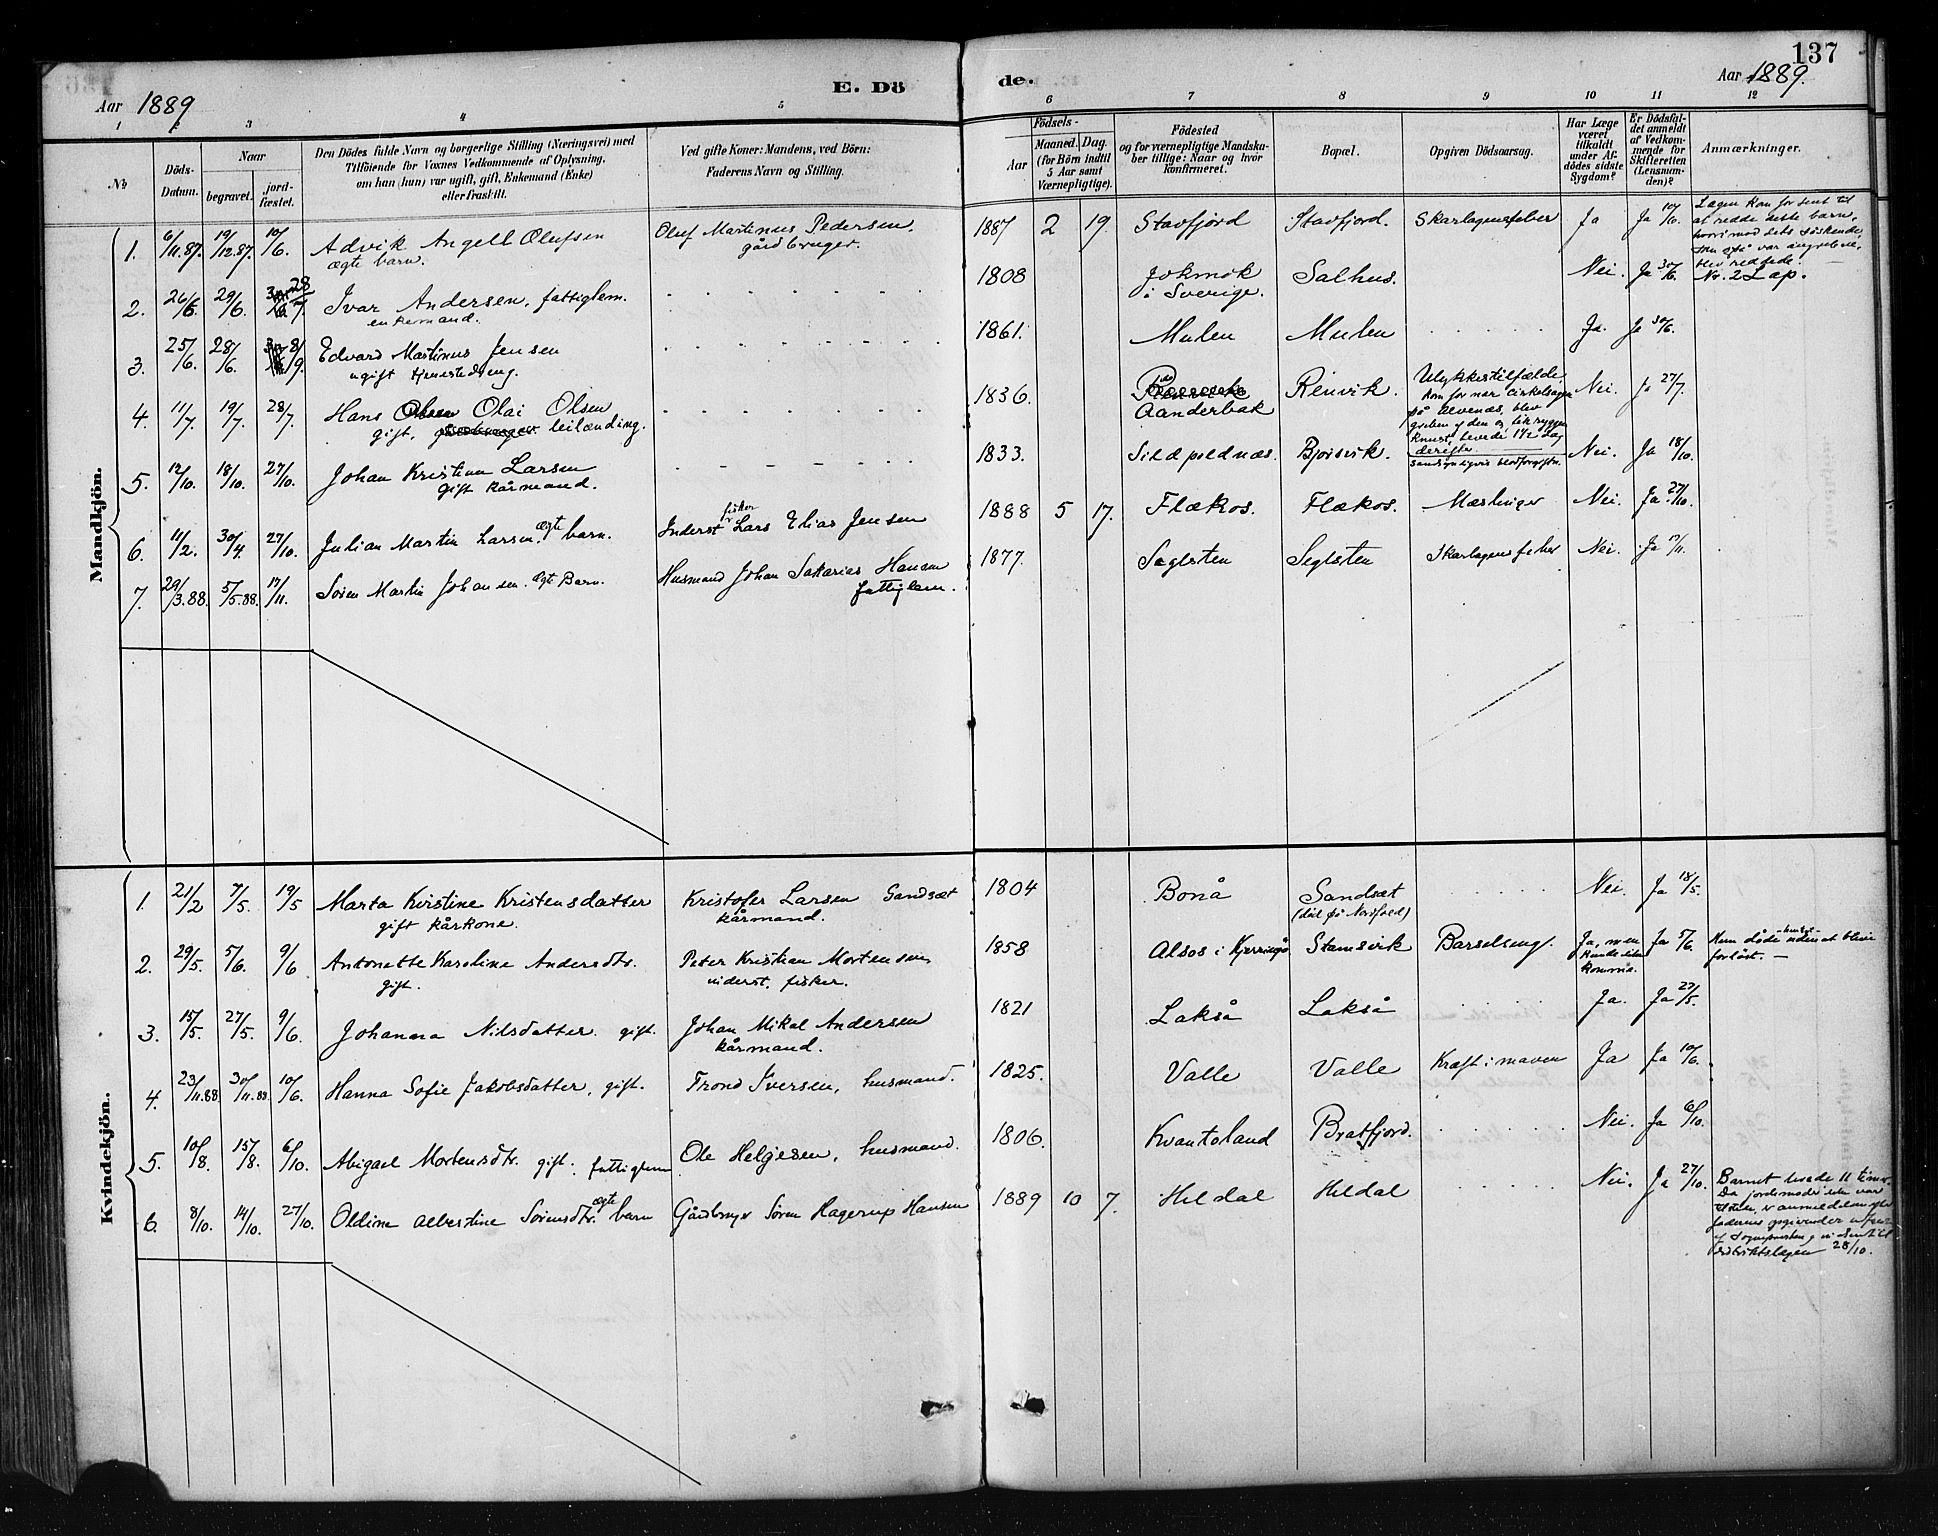 137
E. Dö
de.
Aar 1889
Aar 1889.
1 2 3 4 5
6 7 8 9 10 11 12
№
Döds-
Datum.
Naar
begravet.
jord-
fæstet.
Den Dödes fulde Navn og borgerlige Stilling (Næringsvei) med
Tilföiende for Voxnes Vedkommende af Oplysning,
om han (hun) var ugift, gift, Enkemand (Enke)
eller fraskilt.
Ved gifte Koner: Mandens, ved Börn:
Faderens Navn og Stilling.
Födsels-
Aar
Maaned. Dag.
(for Börn indtil
5 Aar samt
Værnepligtige).
Födested
og for værnepligtige Mandska-
ber tillige: Naar og hvor
konfirmeret.
Bopæl.
Opgiven Dödsaarsag.
Har Læge
været
tilkaldt
under Af-
dödes sidste
Sygdom?
Er Dödsfal-
det anmeldt
af Vedkom-
mende for
Skifteretten
(Lensman-
den)?
Anmærkninger.
Mandkjön.
1. 6/11.87. 19/12.87. 10/6. Advik Angell Olufsen
ægte barn.
Oluf Martinus Pedersen,
gårdbruger.
1887 2 19. Stavfjord Stavfjord. Skarlagensfeber Ja Ja 10/6.
Lægen kom for sent til
at redde dette barn,
hvorimod dets söskende,
som også var angrebne,
blev reddede.
2. 26/6. 29/6. 28/7. Ivar Andersen, fattiglem.
enkemand.
1808 Jokmok
i Sverige. Salhus. Nei. Ja 30/6. Nr. 2 Lap.
3. 25/6. 28/6. 8/9. Edvard Martinus Jensen
ugift tjenestedreng.
1861. Mulen Mulen Ja. Ja 30/6.
4. 11/7. 19/7. 28/7. Hans Olai Olsen
gift, leilænding.
1836. Aanderbak Renvik. Ulykkestilfælde,
kom for nær cirkelsagen
på Alvenæs, blev
greben af den og fik ryggen
knust, levede 1½ dag
derefter
Nei. Ja 27/7.
5. 12/10. 18/10. 27/10. Johan Kristian Larsen
gift kårmand.
1833. Sildpoldnæs. Bjørsvik. sandsynligvis blodforgiftn. Nei. Ja 18/10.
6. 11/2. 30/4. 27/10. Julian Martin Larsen. ægte barn.
Inderst fisker Lars Elias Jensen
1888 5 17. Flækos. Flækos. Mæslinger Nei. Ja. 27/10.
7. 29/3.88. 5/5.88. 17/11. Sören Martin Johansen. ægte Barn.
Husmand Johan Sakarias Hansen
fattiglem.
1877. Seglsten Seglsten Skarlagensfeber Nei. Ja 17/11.
Kvindekjön.
1. 21/2 7/5. 19/5 Marta Kirstine Kristensdatter
gift kårkone.
Kristofer Larsen Sandsæt
kårmand.
1804 Bonå Sandsæt
(död på Nordfold) Nei. Ja 18/5.
2. 29/5. 5/6. 9/6 Antonette Karoline Andersdtr.
gift.
Peter Kristian Mortensen
inderst, fisker.
1858 Alsos i Kjerringö Stamsvik Barselseng. Ja, men
kunde ikke
komme. Ja 5/6. Hun döde uden at blive
forlöst. —
3. 15/5. 27/5. 9/6. Johanna Nilsdatter. gift.
Johan Mikal Andersen
kårmand.
1821 Lakså Lakså Ja. Ja 27/5.
4. 23/11.88. 30/11.88. 10/6. Hanna Sofie Jakobsdatter, gift.
Trond Iversen, husmand.
1825. Valle Valle Kræft i maven Ja Ja 10/6.
5. 10/8. 15/8. 6/10. Abigael Mortensdtr. gift. fattiglem
Ole Helgesen, husmand.
1806. Kvantoland Bratfjord. Nei. Ja 6/10.
6. 8/10. 14/10. 27/10. Oldine Albertine Sörensdtr. ægte barn
Gårdbruger Sören Hagerup Hansen
1889 10 7. Heldal Heldal Nei. Ja 27/10.
Barnet levede 11 timer.
Da jordemoder ikke var
tilstede, er anmeldelsen efter
faderens opgivender
af Sognepræsten
distriktslægen 28/10.